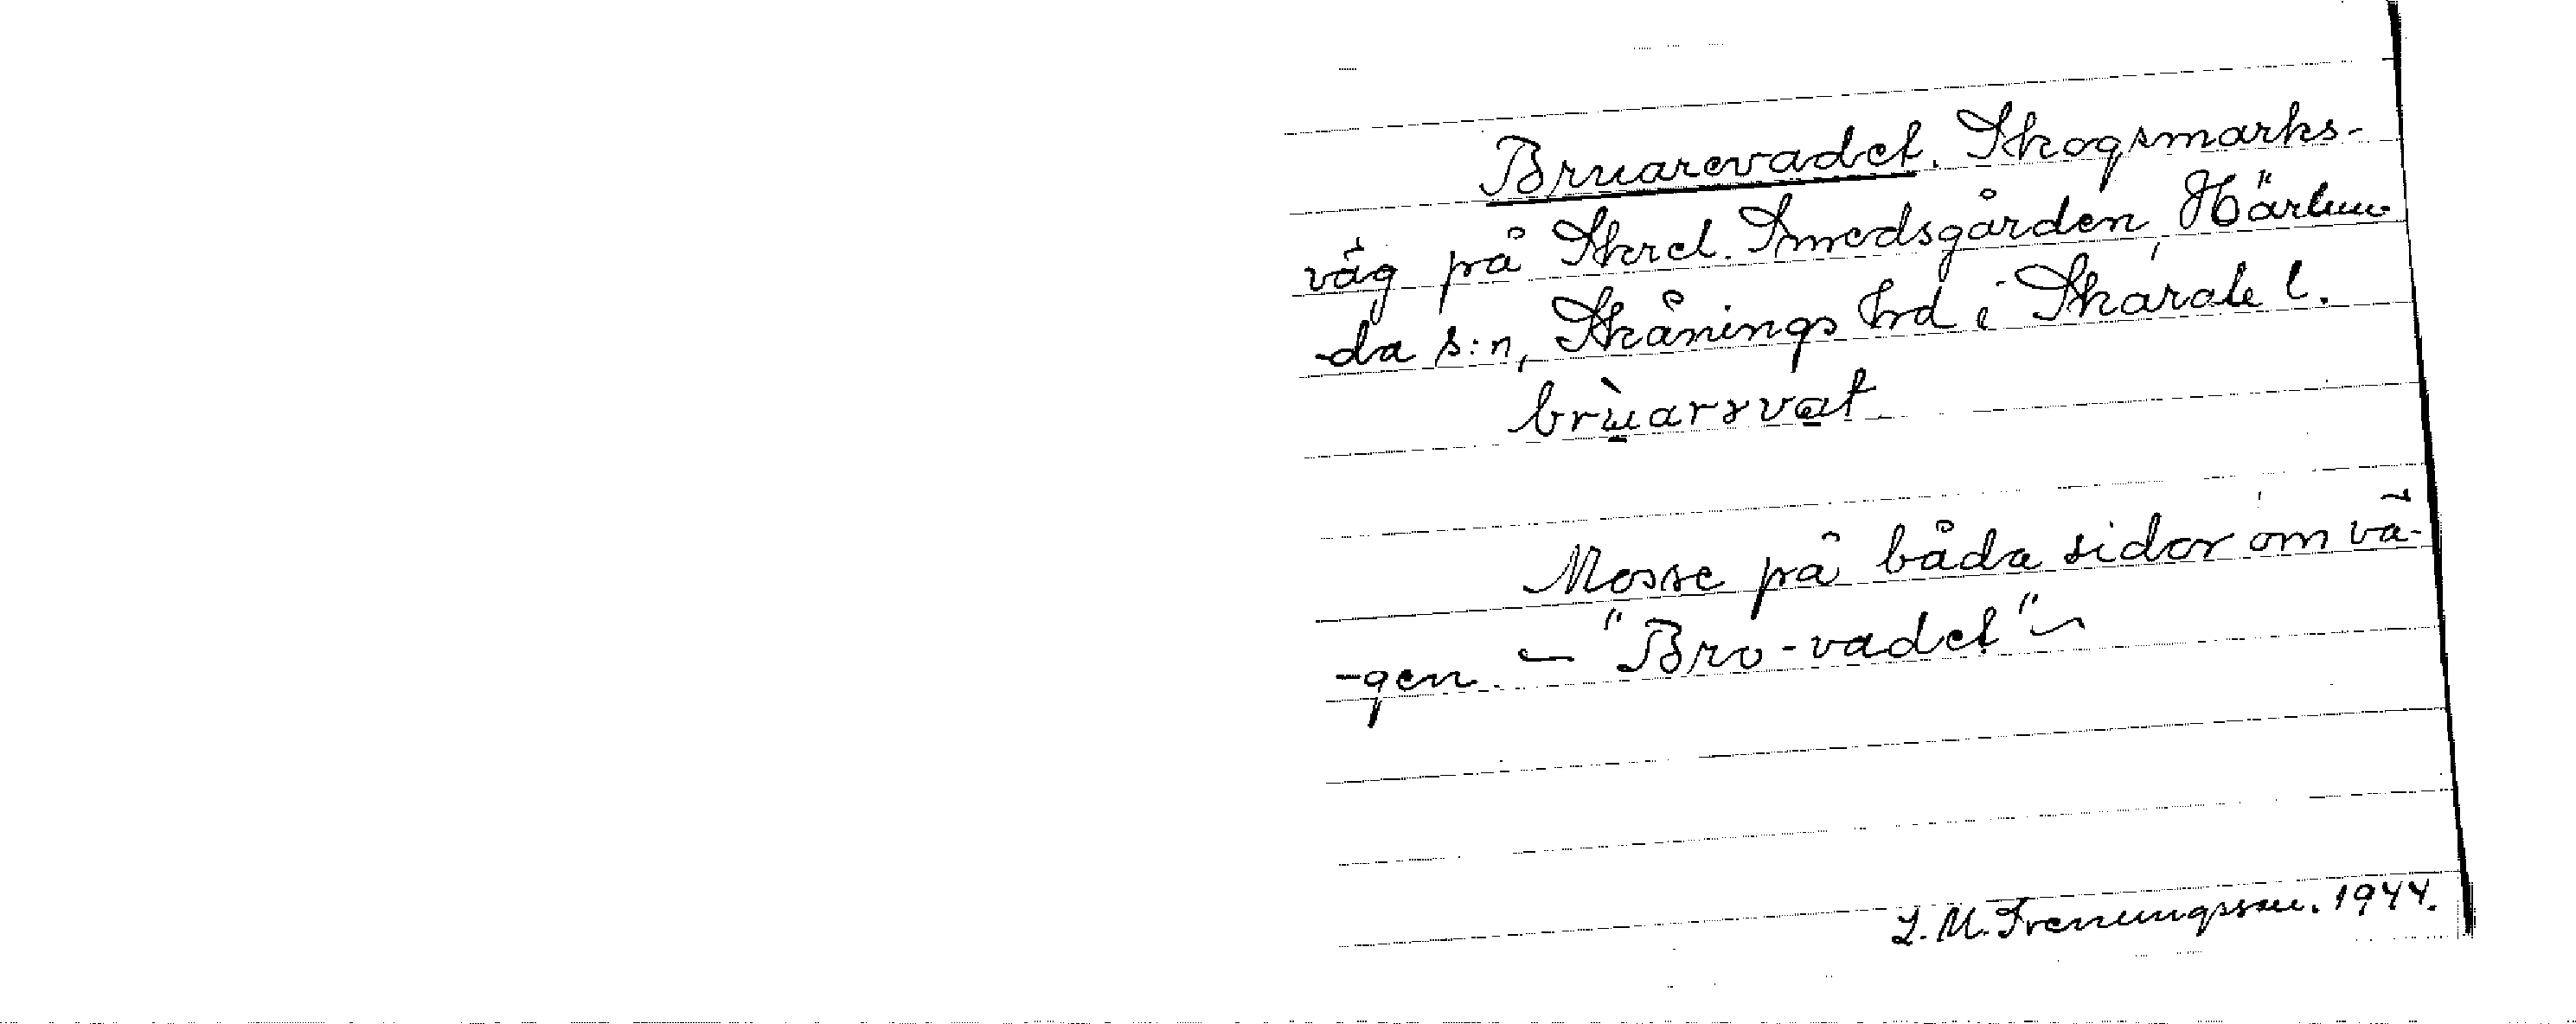 Bruarevadet. Skogsmarks-
väg på Skrel. Smedsgården, Härlun-
-da s:n, Skånings hrd i Skarab. l.
brùarsvat
Mosse på båda sidor om vä-
-gen. — "Bro-vadet" —
L. M. Svenungsson. 1944.